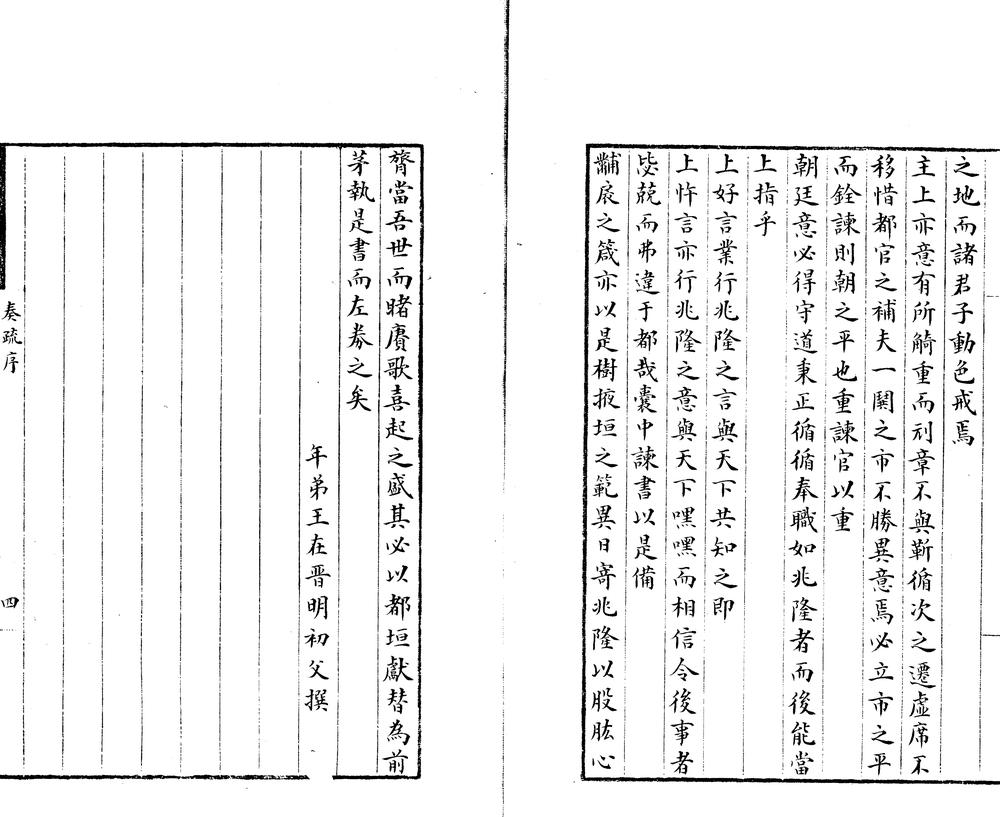 之地而諸君子動色戒焉
主上亦意有所觭重而刓章不與靳循次之遷虛席不
移惜都官之補夫一閧之市不勝異意焉必立市之平
而銓諫則朝之平也重諫官以重
朝廷意必得守道秉正循循奉職如兆隆者而後能當
上指乎
上好言業行兆隆之言與天下共知之即
上忤言亦行兆隆之意與天下嘿嘿而相信令後事者
毖兢而弗違于都哉囊中諫書以是備
黼扆之箴亦以是樹掖垣之範異日寄兆隆以股肱心
膂當吾世而睹賡歌喜起之盛其必以都垣獻替為前
茅執是書而左券之矣
年弟王在晋明初父撰
奏疏序
四